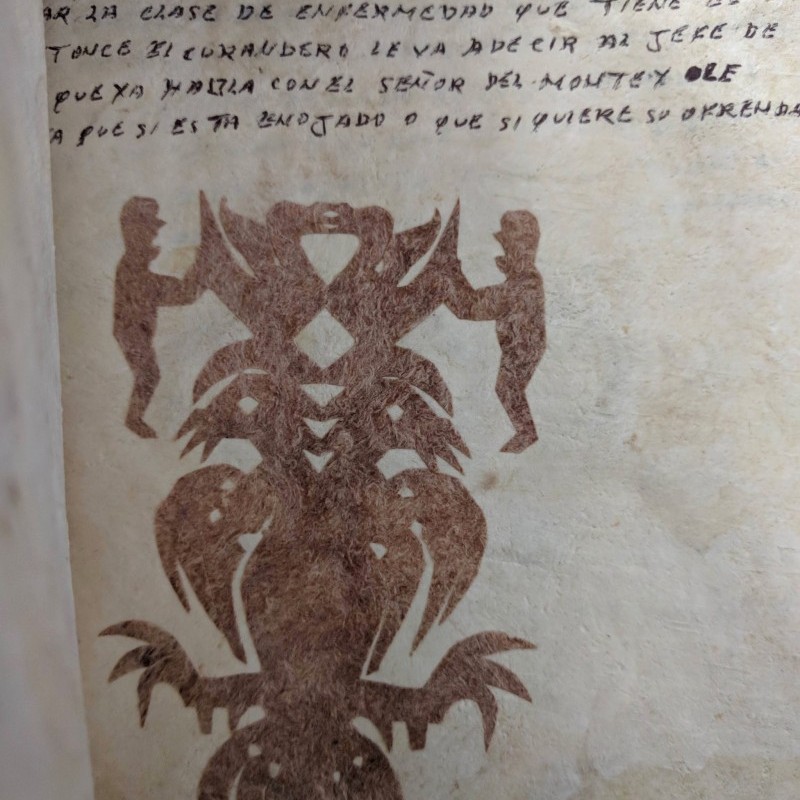 AR LA CLASE DE ENFERMEDAD QUE TIENE
TONCE EL CURANDERO LE VA ADECIR AL JEFE DE
QUE YA HABLA CON EL SEÑOR DEL MONTE Y OLE
A QUE SI ESTA ENOJADO O QUE SI QUIERE SU OFRENDA